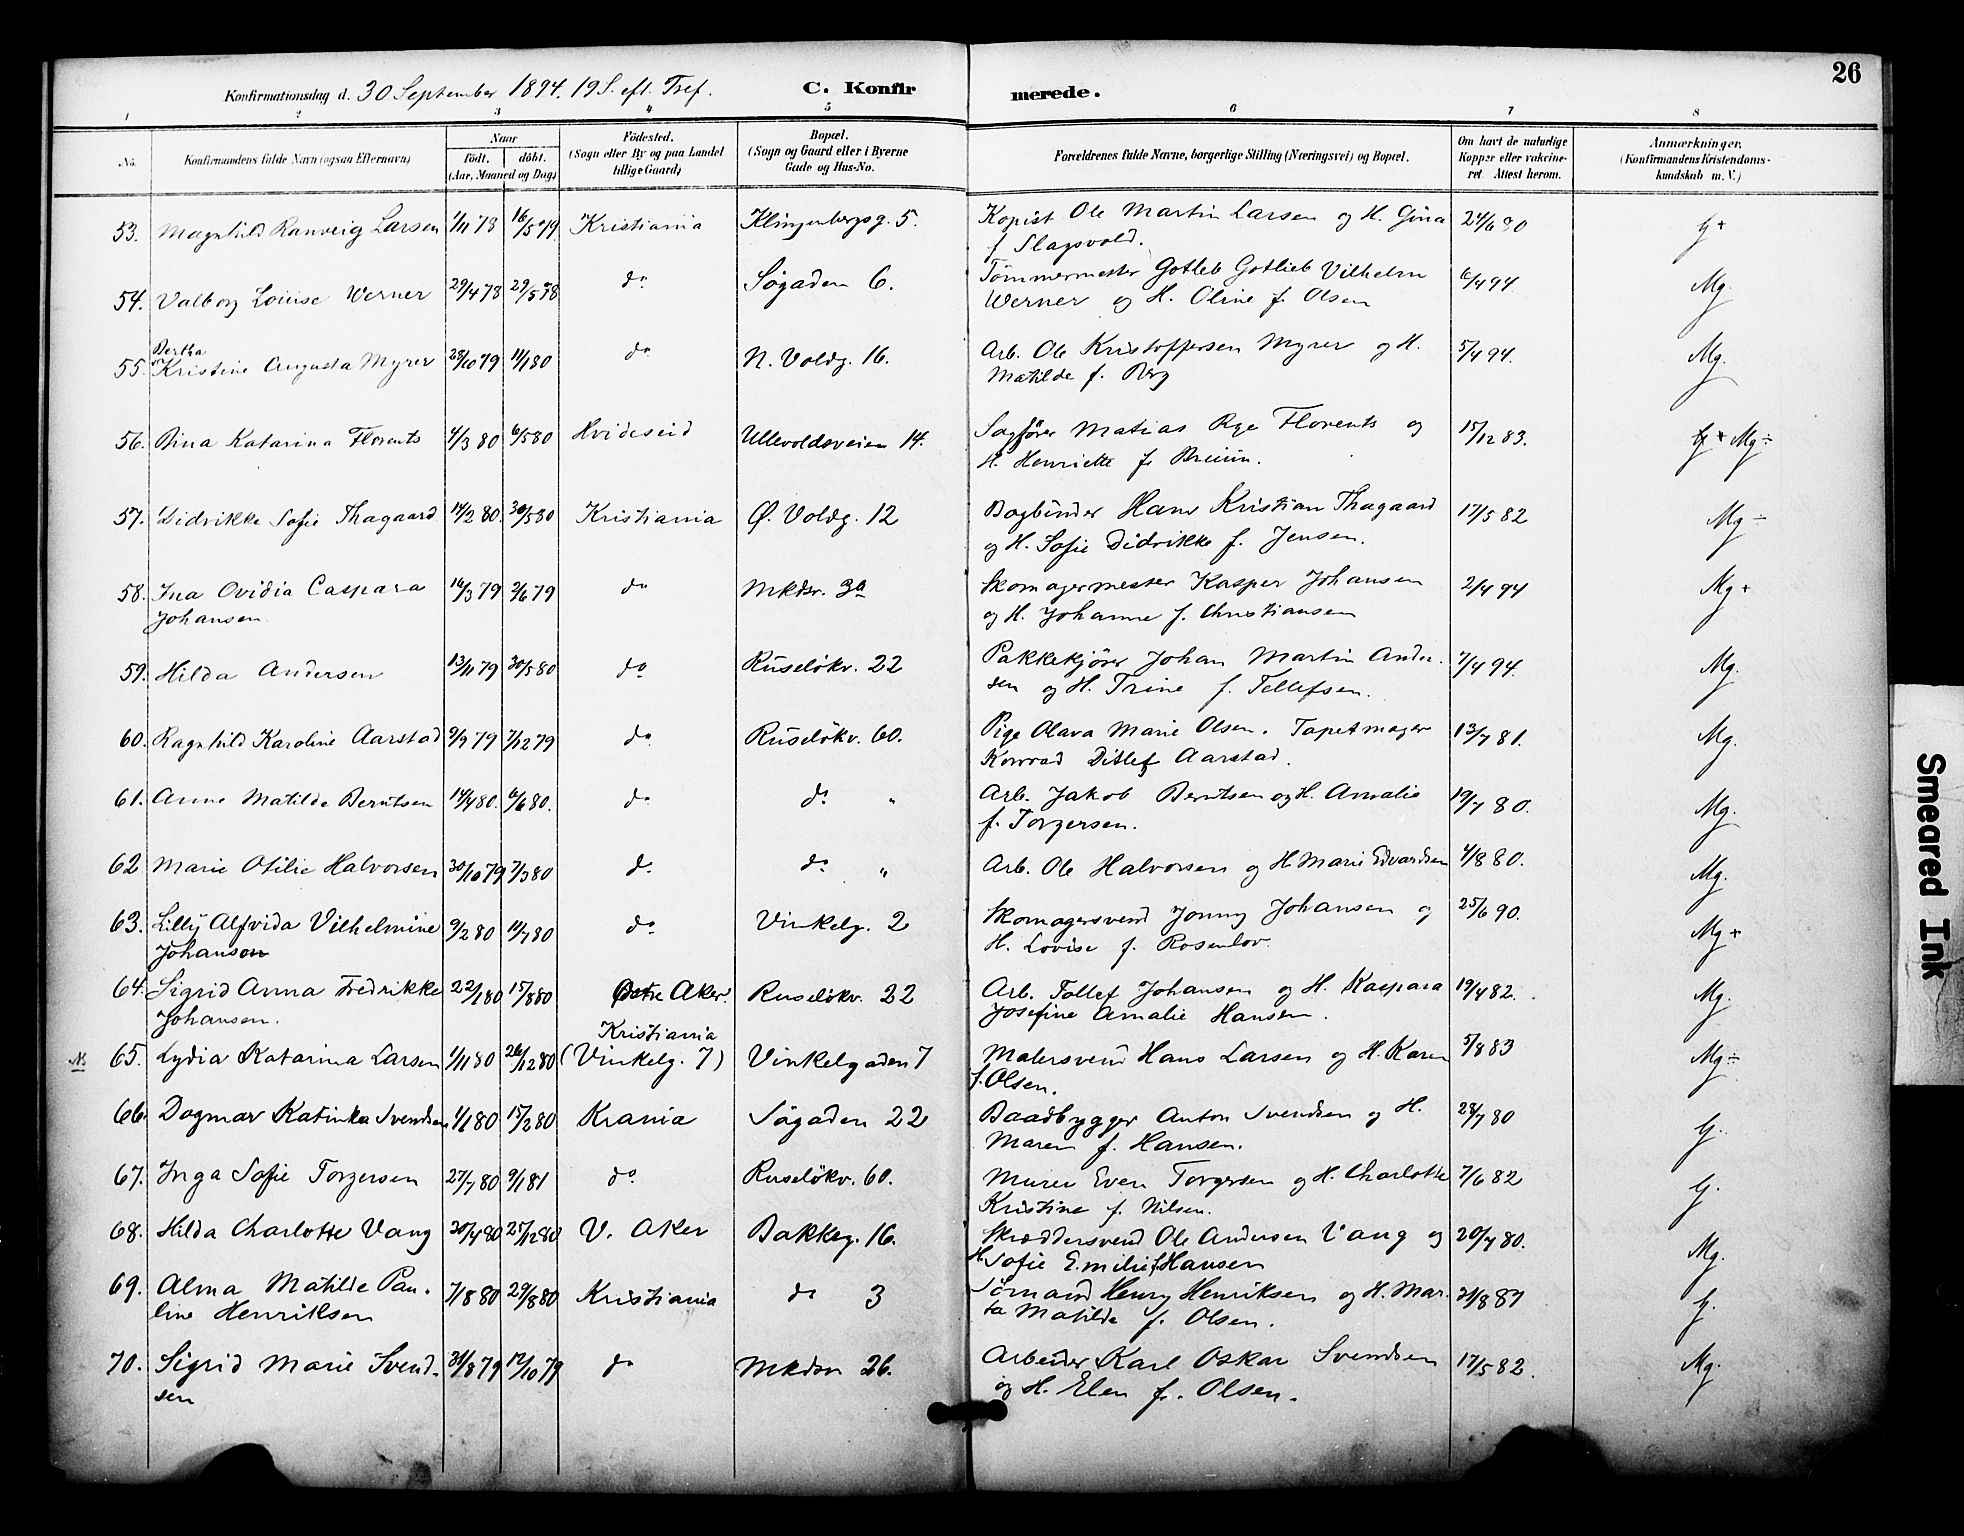 26
Konfirmationsdag d. 30 September 1894. 19 S. eft. Tref. C. Konfirmerede.
1 2 3 4 5 6 7 8
No. Konfirmandens fulde Navn (ogsaa Efternavn) Naar födt. döbt. (Aar, Maaned og Dag) Födested. (Sogn eller By og paa Landet tillige Gaard) Bopæl. (Sogn og Gaard eller i Byerne Gade og Hus-No. Forældrenes fulde Navne, borgerlige Stilling (Næringsvei) og Bopæl. Om havt de naturlige Kopper eller vakcineret. Attest herom. Anmærkninger. (Konfirmandens Kristendomskundskab m. V.)
53. Magnhild Ranveig Larsen 1/11 78 16/5 79 Kristiania Klingenbergsg. 5. Kopist Ole Martin Larsen og H. Gina 24/6 80 G+
f Slagsvold.
54. Valborg Louise Werner 29/4 78 29/5 78 do Søgaden 6. Tømmermester Gotleb Gotlieb Vilhelm 6/4 94 Mg.
Werner og H. Oline f. Olsen
Bertha
55. Kristine Augusta Myrer 28/10 79 11/1 80 do N. Voldg. 16. Arb. Ole Kristoffersen Myrer og H. 5/4 94. Mg.
Matilde f. Berg
56. Dina Katarina Florents 4/3 80 6/5 80 Hvideseid Ullevoldsveien 14. Sagfører Matias Rye Florents og 15/12 83. G+ Mg÷
H. Henriette f.
57. Didrikke Sofie Thagaard 14/2 80. 30/5 80 Kristiania Ø. Voldg. 12 Bogbinder Hans Kristian Thagaard 17/5 82 Mg÷
og H. Sofie Didrikke f. Jensen.
58. Ina Ovidia Caspara 14/3 79 2/6 79 do Mkdsr. 3a Skomagermester Kasper Johansen 2/4 94 Mg+
Johansen. og H. Johanne f. Christiansen
59. Hilda Andersen 13/11 79 30/5 80 do Ruseløkv. 22 Pakkekjører Johan Martin Ander- 7/4 94. Mg.
sen og H. Trine f. Tellefsen.
60. Ragnhild Karoline Aarstad 9/9 79 7/12 79 do Ruseløkv. 60. Pige Olava Marie Olsen. Tapetmager 13/7 81. Mg.
Konrad Ditlef Aarstad.
61. Anne Matilde Berntsen 14/4 80. 6/6 80. do do " Arb. Jakob Berntsen og H. Amalie 19/7 80. Mg.
f. Torgersen.
62 Marie Otilie Halvorsen 30/10 79 7/3 80 do do " Arb. Ole Halvorsen og H. Marie Edvardsen 4/8 80. Mg.
63. Lilly Alfvida Vilhelmine 9/2 80 11/7 80 do Vinkelg. 2 Skomagersvend Jonny Johansen og 25/6 90. Mg+
Johanson H. Lovise f. Rosenlov.
64. Sigrid Anna Fredrikke 22/1 80 15/8 80 Østre Aker. Ruseløkv. 22 Arb. Tollef Johansen og H. Kaspara 19/4 82. Mg.
Johansen. Josefine Amalie Hansen.
Kristiania
N 65. Lydia Katarina Larsen 1/11 80 26/12 80 (Vinkelg. 7) Vinkelgaden 7 Malersvend Hans Larsen og H. Karen 5/8 83 Mg÷
f. Olsen.
66. Dagmar Katinka Svendsen 1/1 80 15/2 80 Krania Søgaden 22 Baadbygger Anton Svendsen og H. 28/7 80 G.
Maren f. Hansen.
67. Inga Sofie Torgersen 27/7 80 9/1 81 do Ruseløkv. 60. Murer Even Torgersen og H. Charlotte 7/6 82 G.
Kristine f. Nilsen.
68. Hilda Charlotte Vang 20/4 80 25/12 80 V. Aker Bakkeg. 16. Skræddersvend Ole Andersen Vang og 20/7 80. Mg.
H. Sofie Emilie f Hansen
69. Alma Matilde Pau- 7/8 80 29/8 80 Kristiania do 3 Sømand Henry Henriksen og H. Mar- 31/8 81 G.
line Henriksen ta Matilde f. Olsen.
70. Sigrid Marie Svend- 31/8 79 12/10 79 do Mkdsv 26. Arbeider Karl Oskar Svendsen 17/5 82. Mg.
sen og H. Elen f. Olsen.
Smeared Ink